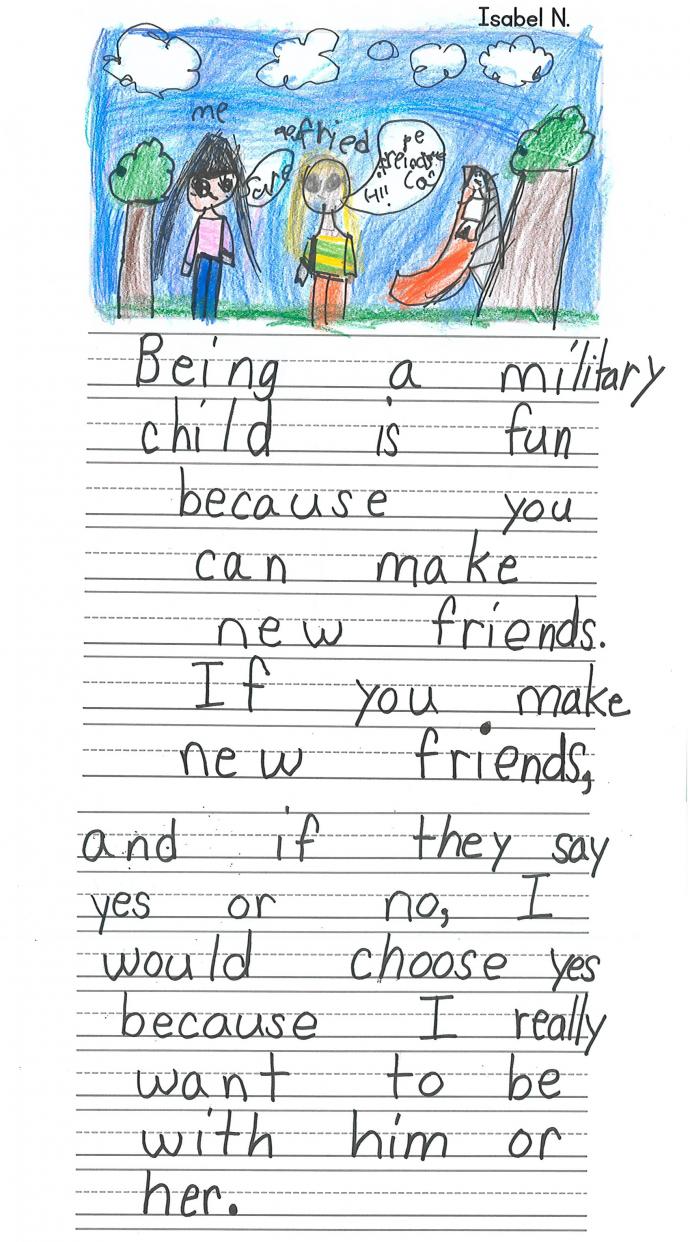 Isabel N.
me
fried
Hi!
Being a military
child is fun
because you
can make
new friends.
If you make
new friends,
and if they say
yes or no, I
would choose yes
because I really
want to be
with him or
her.